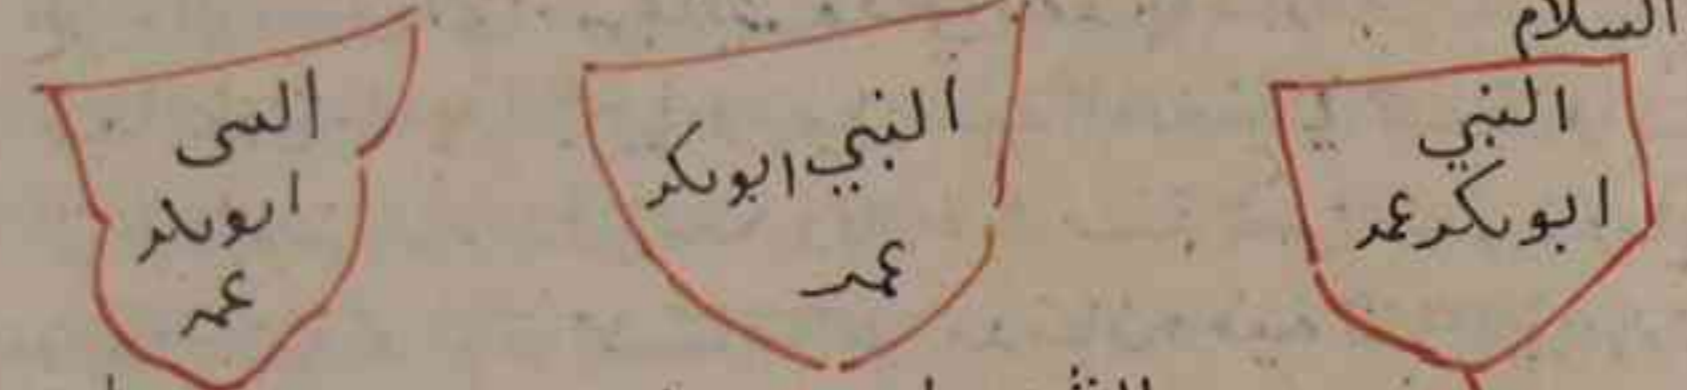 السلام
النبي
ابوبكر عمر
النبي ابوبكر
عمر
النبي
ابوبكر
عمر